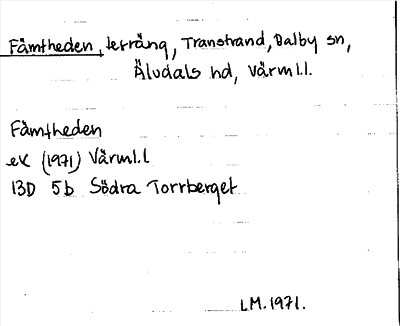 Fämtheden, terräng, Transtrand, Dalby sn,
Älvdals hd, Värml.l.
Fämtheden
eK (1971) Värml.l
13D 5b Södra Torrberget
LM.1971.